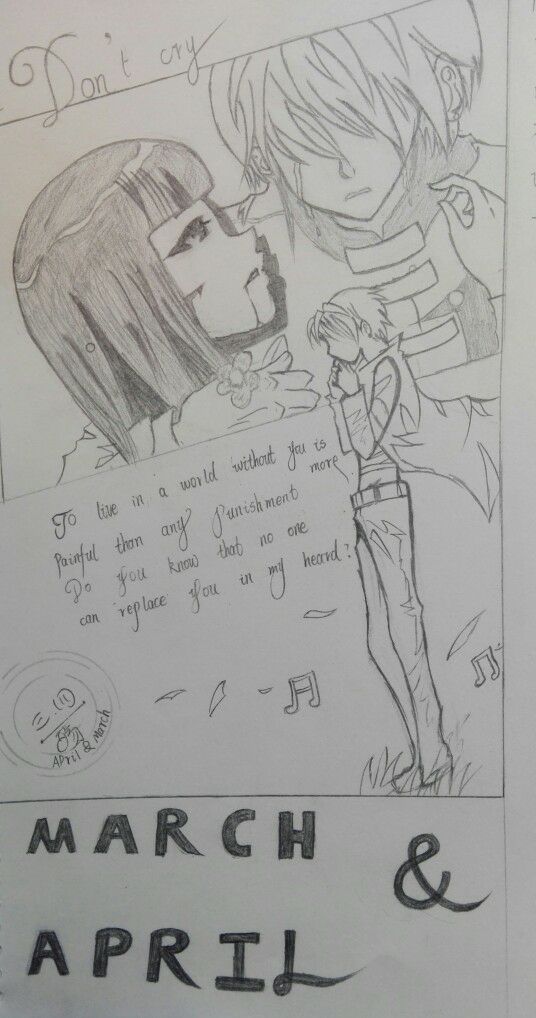 Don't cry
To live in a world without you is
painful than any punishment more
Do you know that no one
can replace you in my heard?
三 四
April & March
MARCH
&
APRIL